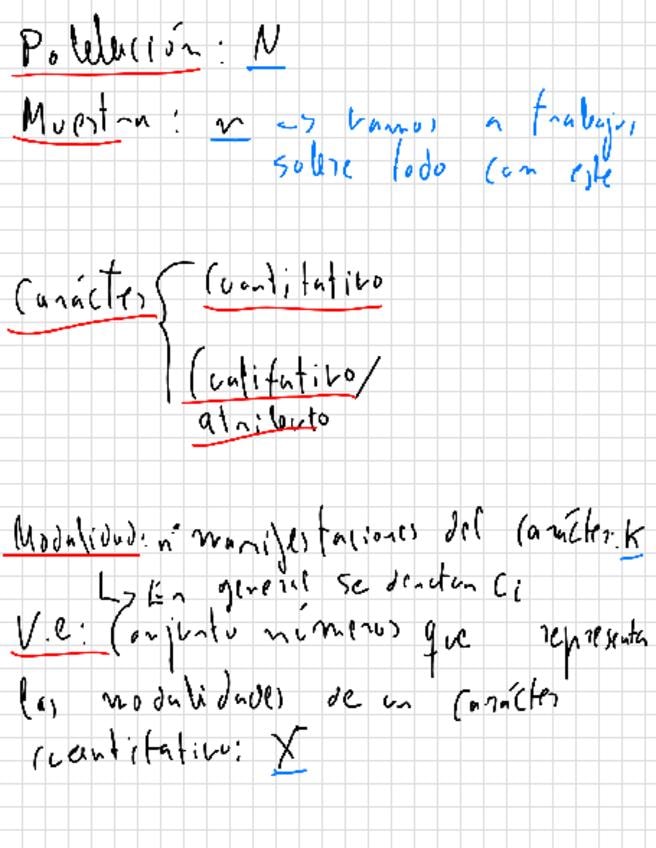 Población: N
Muestra: n -> vamos a trabajar
sobre todo con este
Carácter { Cuantitativo
Cualitativo/
atributo
Modalidad: nº manifestaciones del carácter. K
↳ En general se denotan Ci
V.e: Conjunto números que representa
las modalidades de un carácter
cuantitativo: X